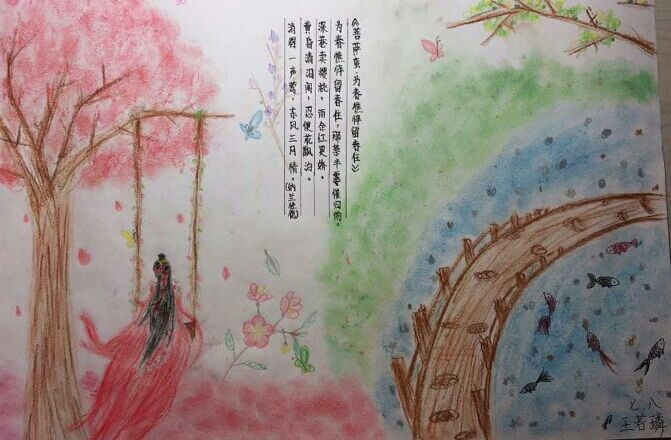 《菩萨蛮·为春憔悴留春住》
为春憔悴留春住，那禁半霎催归雨。
深巷卖樱桃，雨余红更娇。
黄昏清泪阁，忍便花飘泊。
消得一声莺，东风三月情。(纳兰性德)
七.八
王若璘